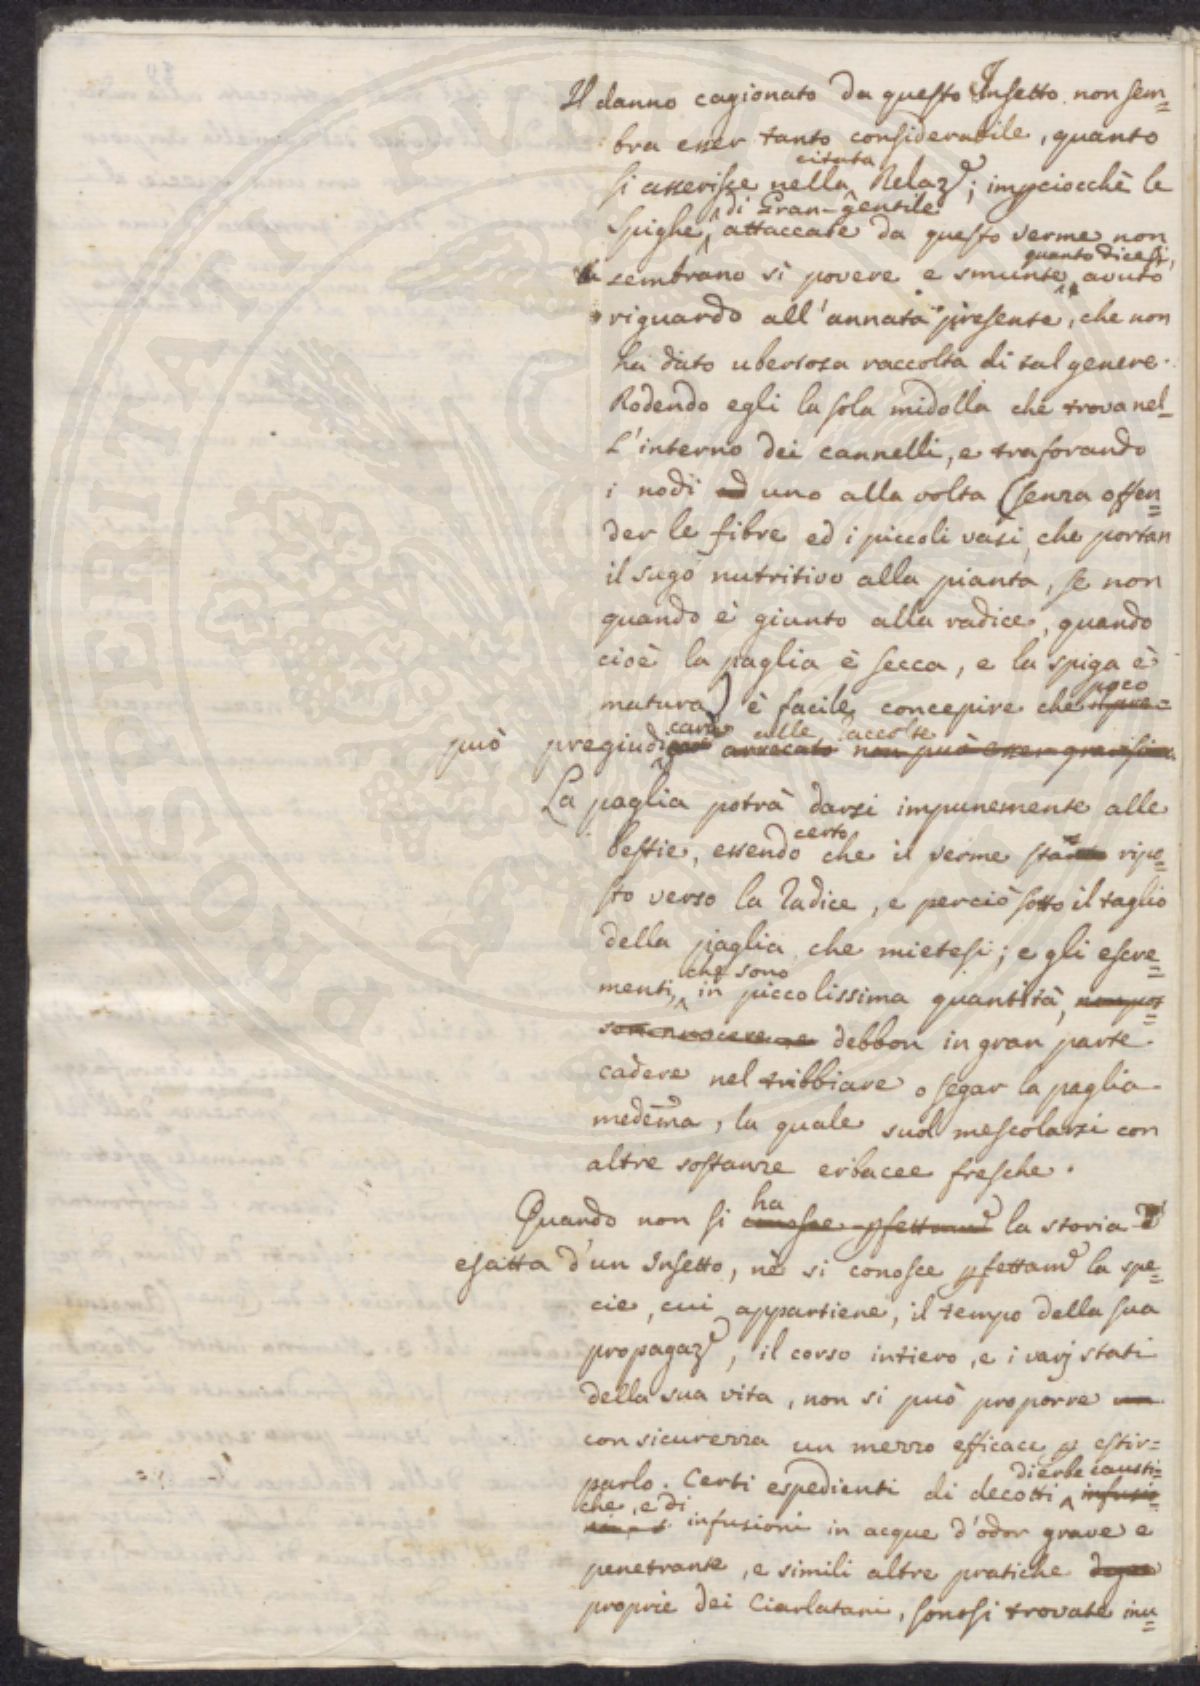 Il danno cagionato da questo Insetto non sem=
bra esser tanto considerabile, quanto
si asserisce nella citata Relaz.e; impciocchè le
Spighe di Gran-gentile attaccate da questo verme non
sembrano sì povere e smunte, quanto dicesi, avuto
riguardo all'annata presente, che non
ha dato ubertosa raccolta di tal genere.
Rodendo egli la sola midolla che trova nel-
l'interno dei cannelli, e traforando
i nodi ad uno alla volta (senza offen=
der le fibre ed i piccoli vasi, che portan
il sugo nutritivo alla pianta, se non
quando è giunto alla radice, quando
cioè la paglia è secca, e la spiga è
matura) è facile concepire che poco
può pregiudicare alle raccolte arrecato non può esser gravissimo.
La paglia potrà darsi impunemente alle
bestie, essendo certo che il verme sta ripo=
sto verso la Radice, e perciò sotto il taglio
della paglia che mietesi; e gli escre=
menti, che sono in piccolissima quantità, non pos=
son nuocere, e debbon in gran parte
cadere nel tribbiare o segar la paglia
medema, la quale suol mescolarsi con
altre sostanze erbacee fresche.
Quando non si ha conosce pfettam.e la storia
esatta d'un Insetto, nè si conosce pfettam.e la spe=
cie, cui appartiene, il tempo della sua
propagaz.e, il corso intiero, e i varj stati
della sua vita, non si può proporre un
con sicurezza un mezzo efficace p estir=
parlo. Certi espedienti di decotti di erbe causti=
che, e di infusioni in acque d'odor grave e
penetrante, e simili altre pratiche degne
proprie dei Ciarlatani, sonosi trovate inu=